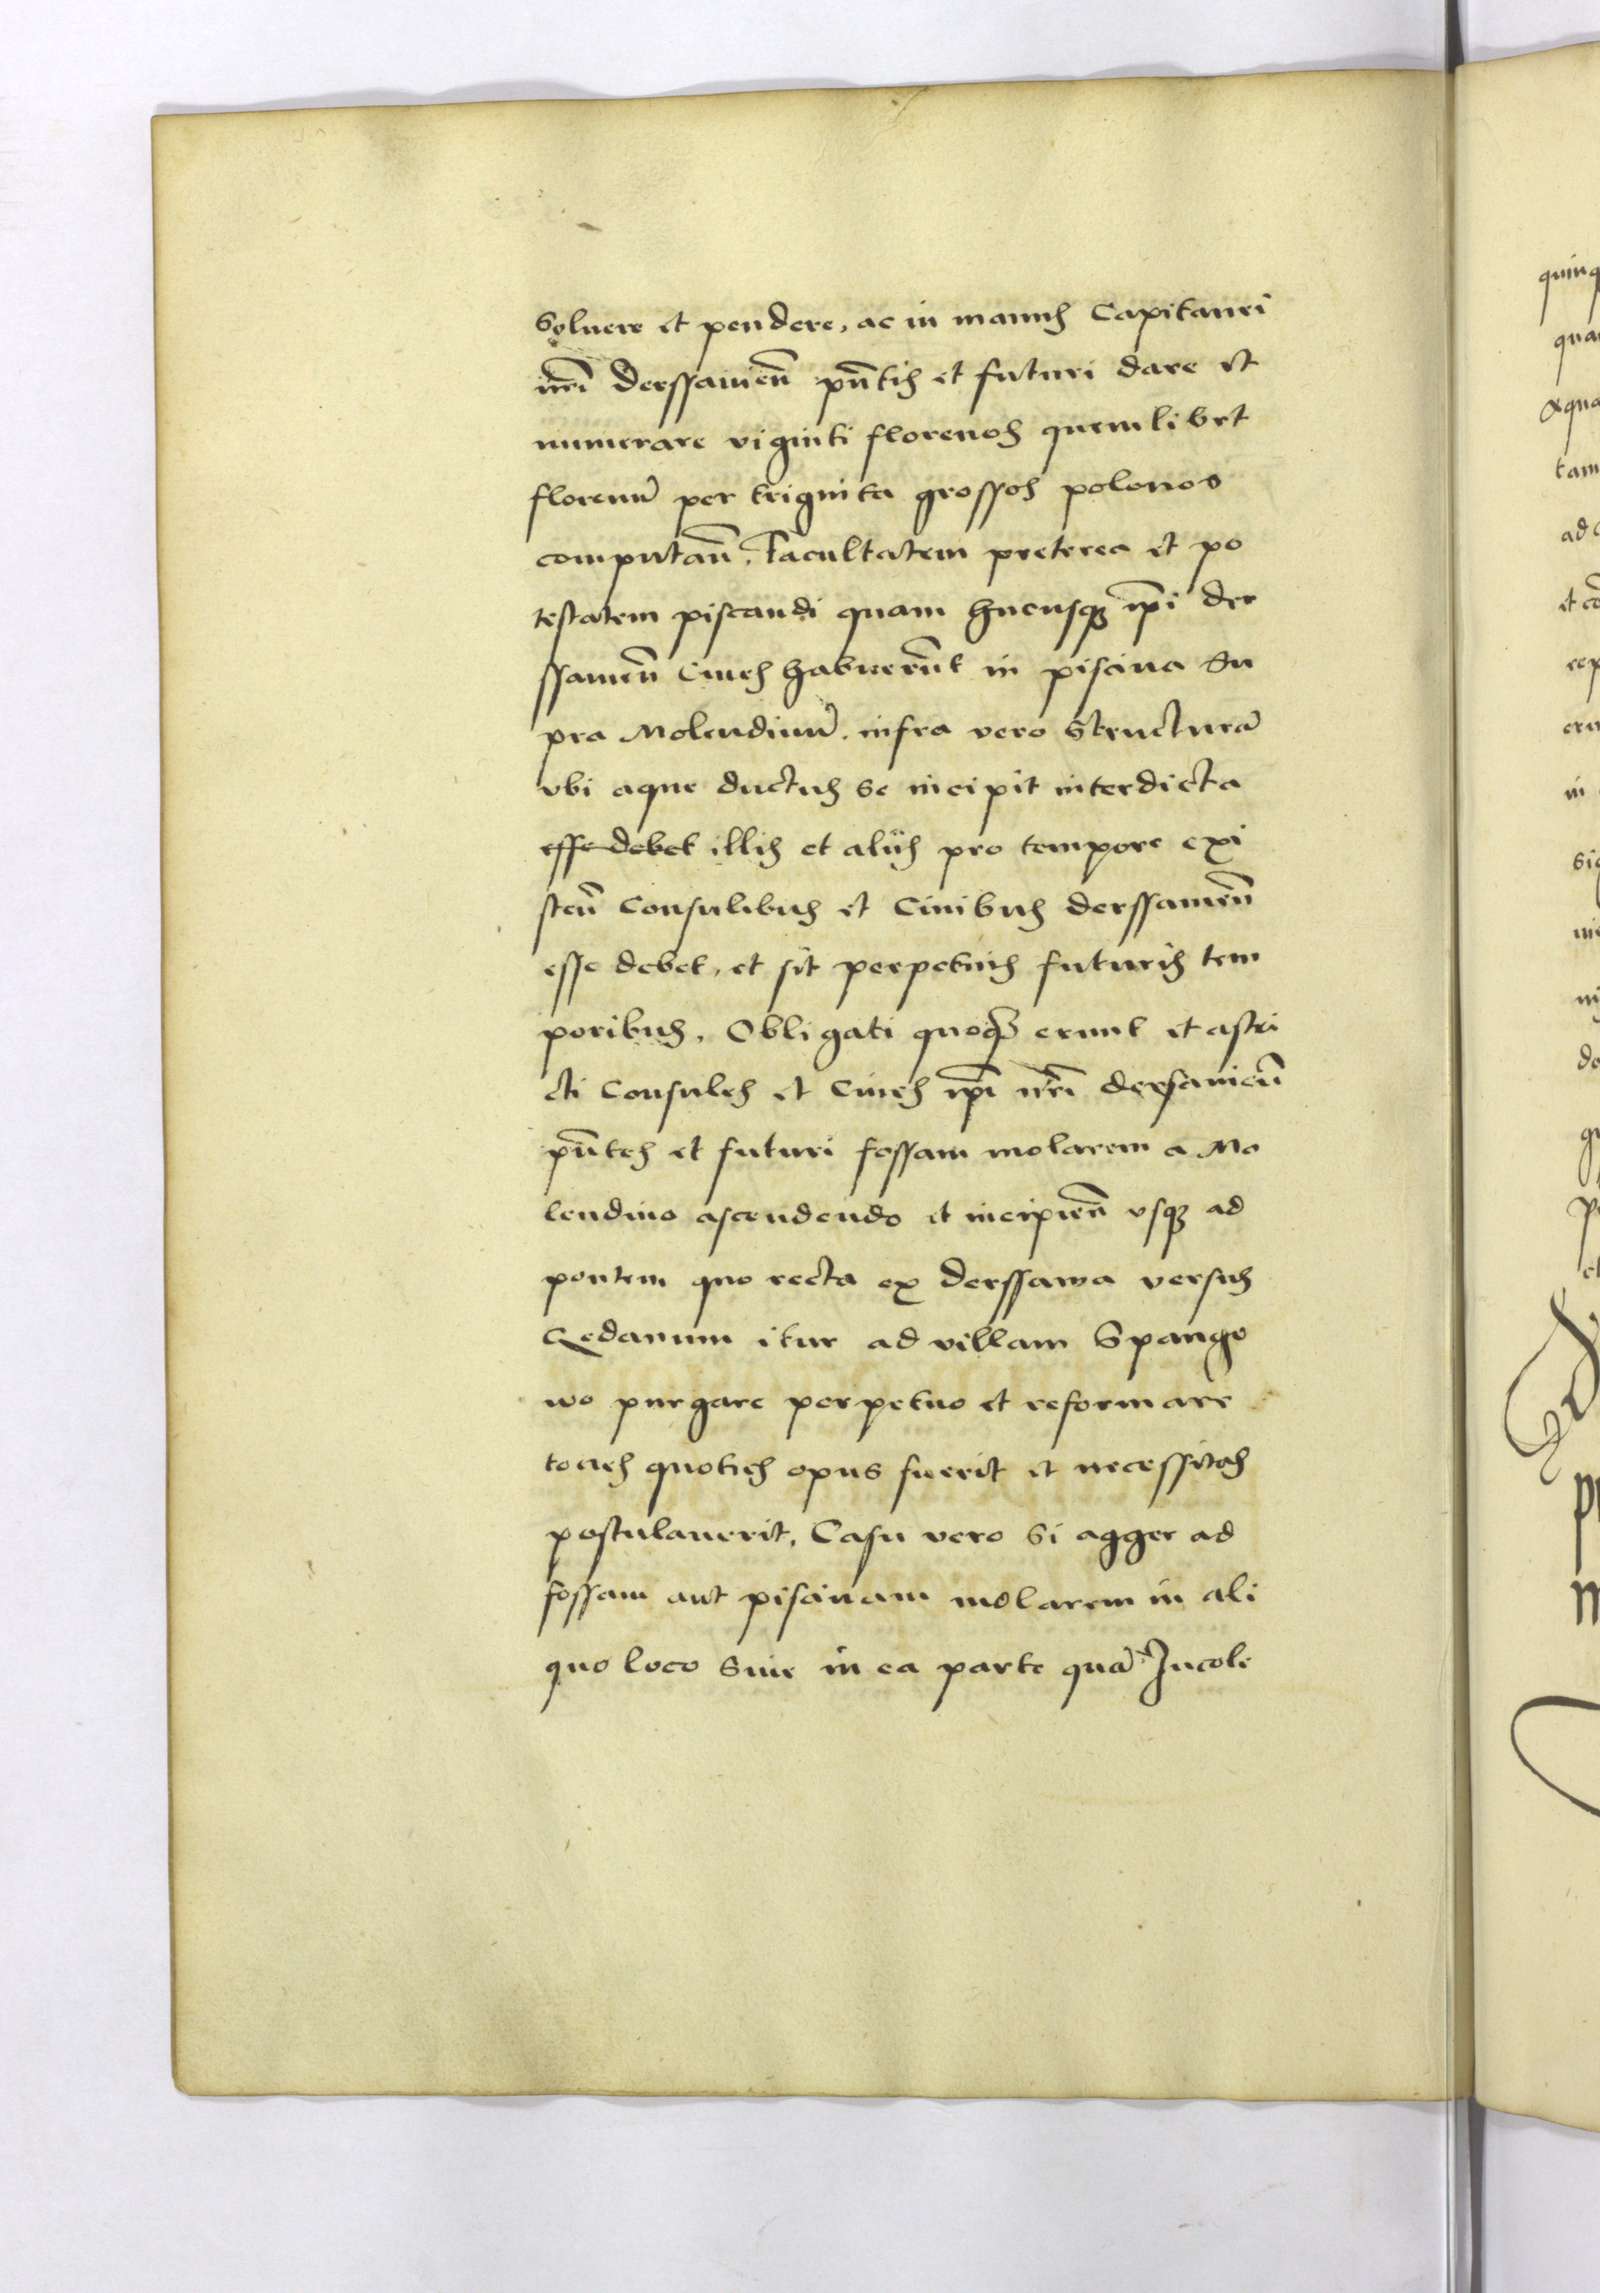 Soluere et pendere, ac in manus Capitanei
nr̃i derssauien̄ pn̄tis et futuri dare et
numerare viginti florenos quemlibet
florenū per triginta grossos polonos
computan̄, Facultatem preterea et po
testatem piscandi quam hucusq₃ ip̄i der
ssauien̄ Ciues habuerūnt in piscina su
pra Molendinū. infra vero Structurā
vbi aque ductus se incipit interdicta
esse debet illis et alijs pro tempore exi
sten̄ Consulibus et Ciuibus derssauien̄
esse debet, et sit perpetuis futuris tem
poribus, Obligati quoq₃ erunt et astri
cti Consules et Ciues ip̄i nr̃i dersauien̄
pn̄tes et futuri fossam molarem a Mo
lendino ascendendo et incipien̄ vsq₃ ad
pontem quo recta ex derssawa versus
Gedanum itur ad villam Spango
wo purgare perpetuo et reformare
tocies quoties opus fuerit et necessitas
postulauerit, Casu vero si agger ad
fossam aut piscinam molarem in ali
quo loco siue in ea parte quā Incole
quinq
qua
aqua
tam
ad
et cō
rep
in